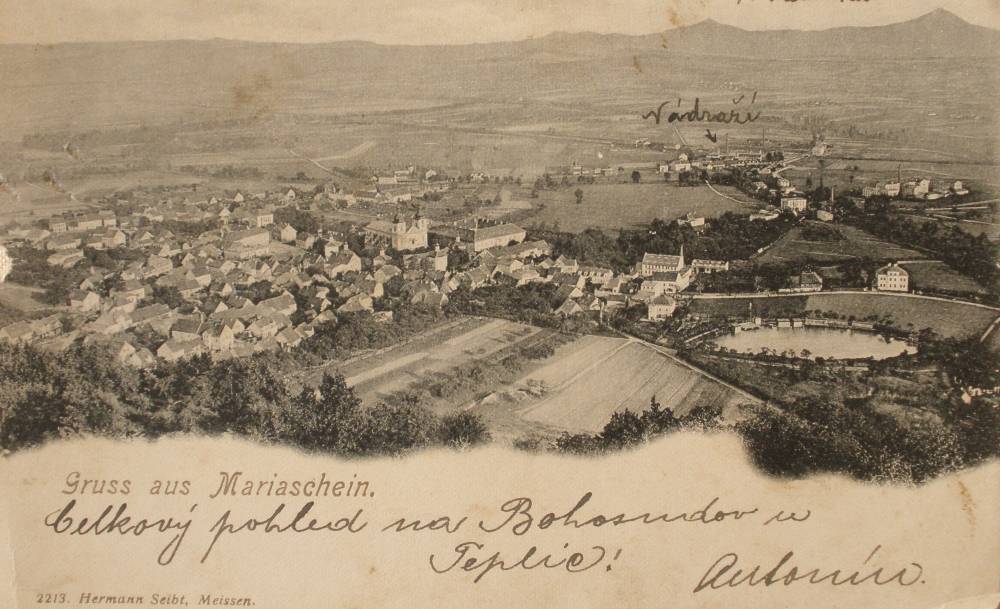 Nádraží
Gruss aus Mariaschein.
Celkový pohled na Bohosudov u
Teplic!
Antonín.
2213. Hermann Seibt, Meissen.